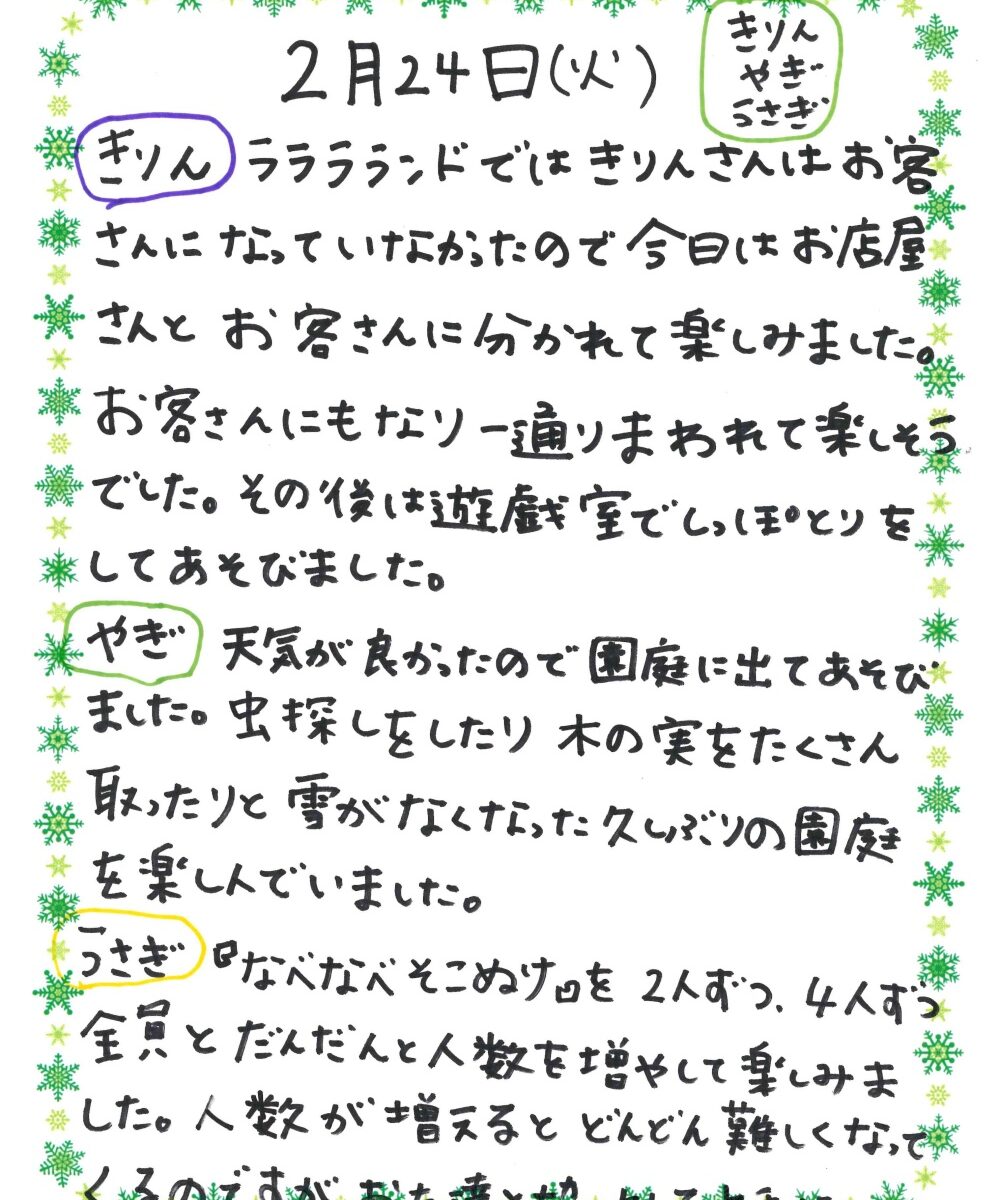 2月24日(火)
きりん
やぎ
うさぎ
きりん ララララランドではきりんさんはお客
さんになっていなかったので今日はお店屋
さんとお客さんに分かれて楽しみました。
お客さんにもなり一通りまわれて楽しそう
でした。その後は遊戯室でしっぽとりを
してあそびました。
やぎ 天気が良かったので園庭に出てあそび
ました。虫探しをしたり木の実をたくさん
取ったりと雪がなくなった久しぶりの園庭
を楽しんでいました。
うさぎ 『なべなべそこぬけ』を2人ずつ、4人ずつ
全員とだんだんと人数を増やして楽しみま
した。人数が増えるとどんどん難しくなって
くるのですが